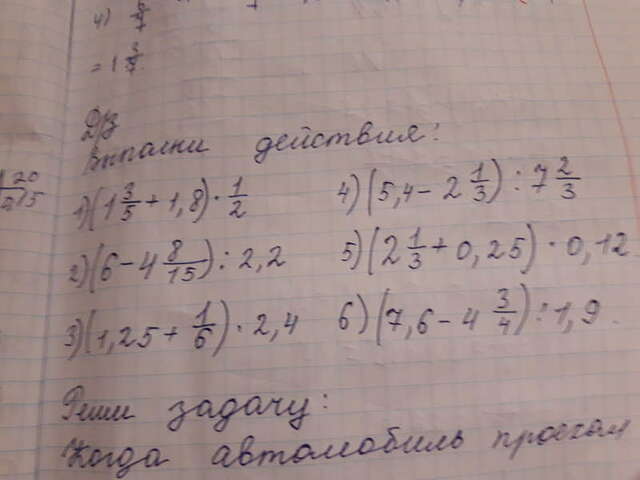 4)
= 1
Д/з
Выполни действия:
1) (1 3/5 + 1,8) · 1/2
4) (5,4 - 2 1/3) : 7 2/3
2) (6 - 4 8/15) : 2,2
5) (2 1/3 + 0,25) · 0,12
3) (1,25 + 1/6) · 2,4
6) (7,6 - 4 3/4) : 1,9
Реши задачу:
Когда автомобиль проехал